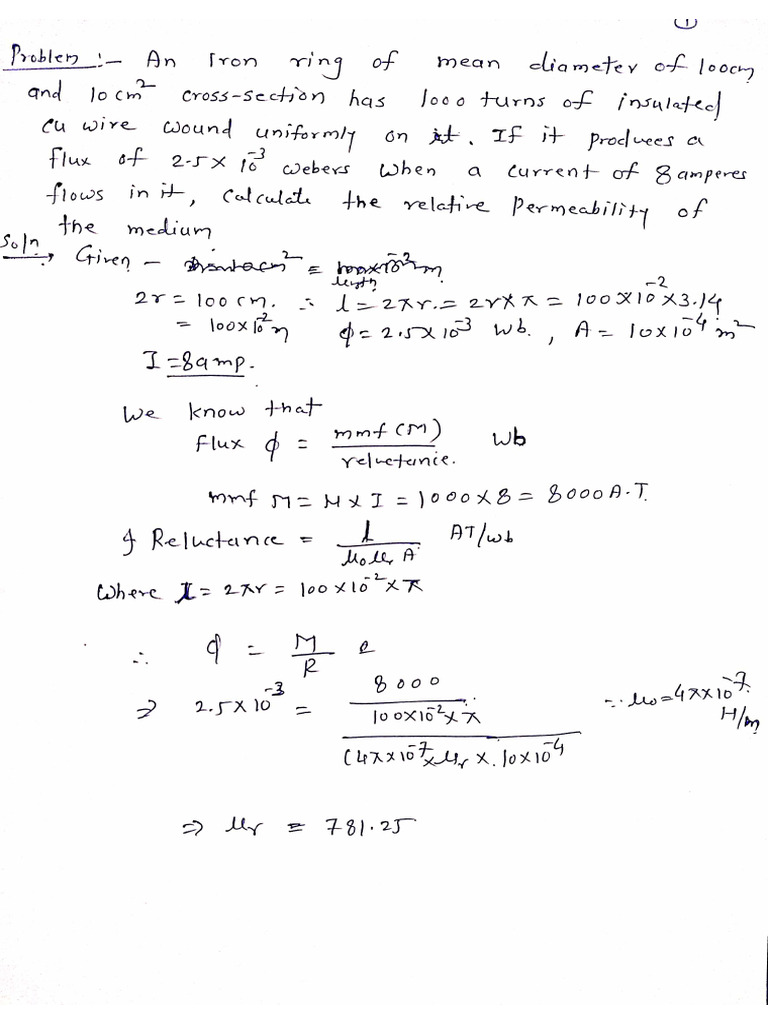 ①
Problem :- An Iron ring of mean diameter of 100cm
and 10 cm² cross-section has 1000 turns of insulated
cu wire wound uniformly on it. If it produces a
flux of 2.5 × 10⁻³ webers when a current of 8 amperes
flows in it, calculate the relative permeability of
the medium
Soln → Given -
length
2r = 100 cm. ∴ l = 2πr. = 2r×π = 100×10⁻²×3.14
= 100×10⁻² m φ = 2.5×10⁻³ wb. , A = 10×10⁻⁴ m²
I = 8amp.
We know that
flux φ = mmf (M) / reluctance. wb
mmf M = N × I = 1000 × 8 = 8000 A.T.
& Reluctance = l / μ₀μᵣ A AT/wb
Where l = 2πr = 100 × 10⁻² × π
∴ φ = M / R
⇒ 2.5 × 10⁻³ = 8000 / 100×10⁻²×π / (4π×10⁻⁷ × μᵣ × 10×10⁻⁴ ∵ μ₀ = 4π×10⁻⁷
H/m
⇒ μᵣ = 781.25